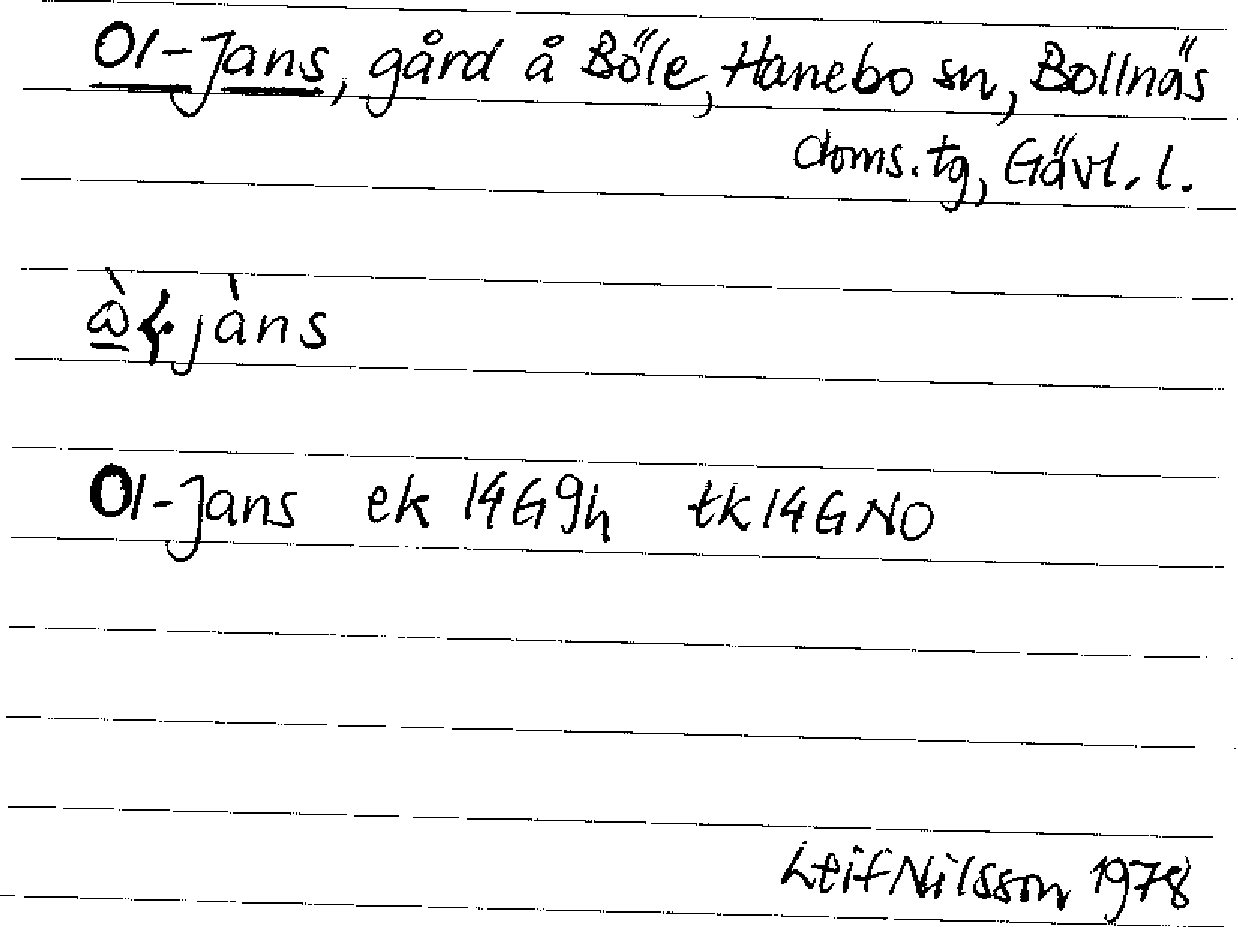 Ol-Jans, gård å Böle, Hanebo sn, Bollnäs
doms.tg, Gävl. l.
jàns
Ol-Jans ek 14G9h tk14GNO
Leif Nilsson 1978